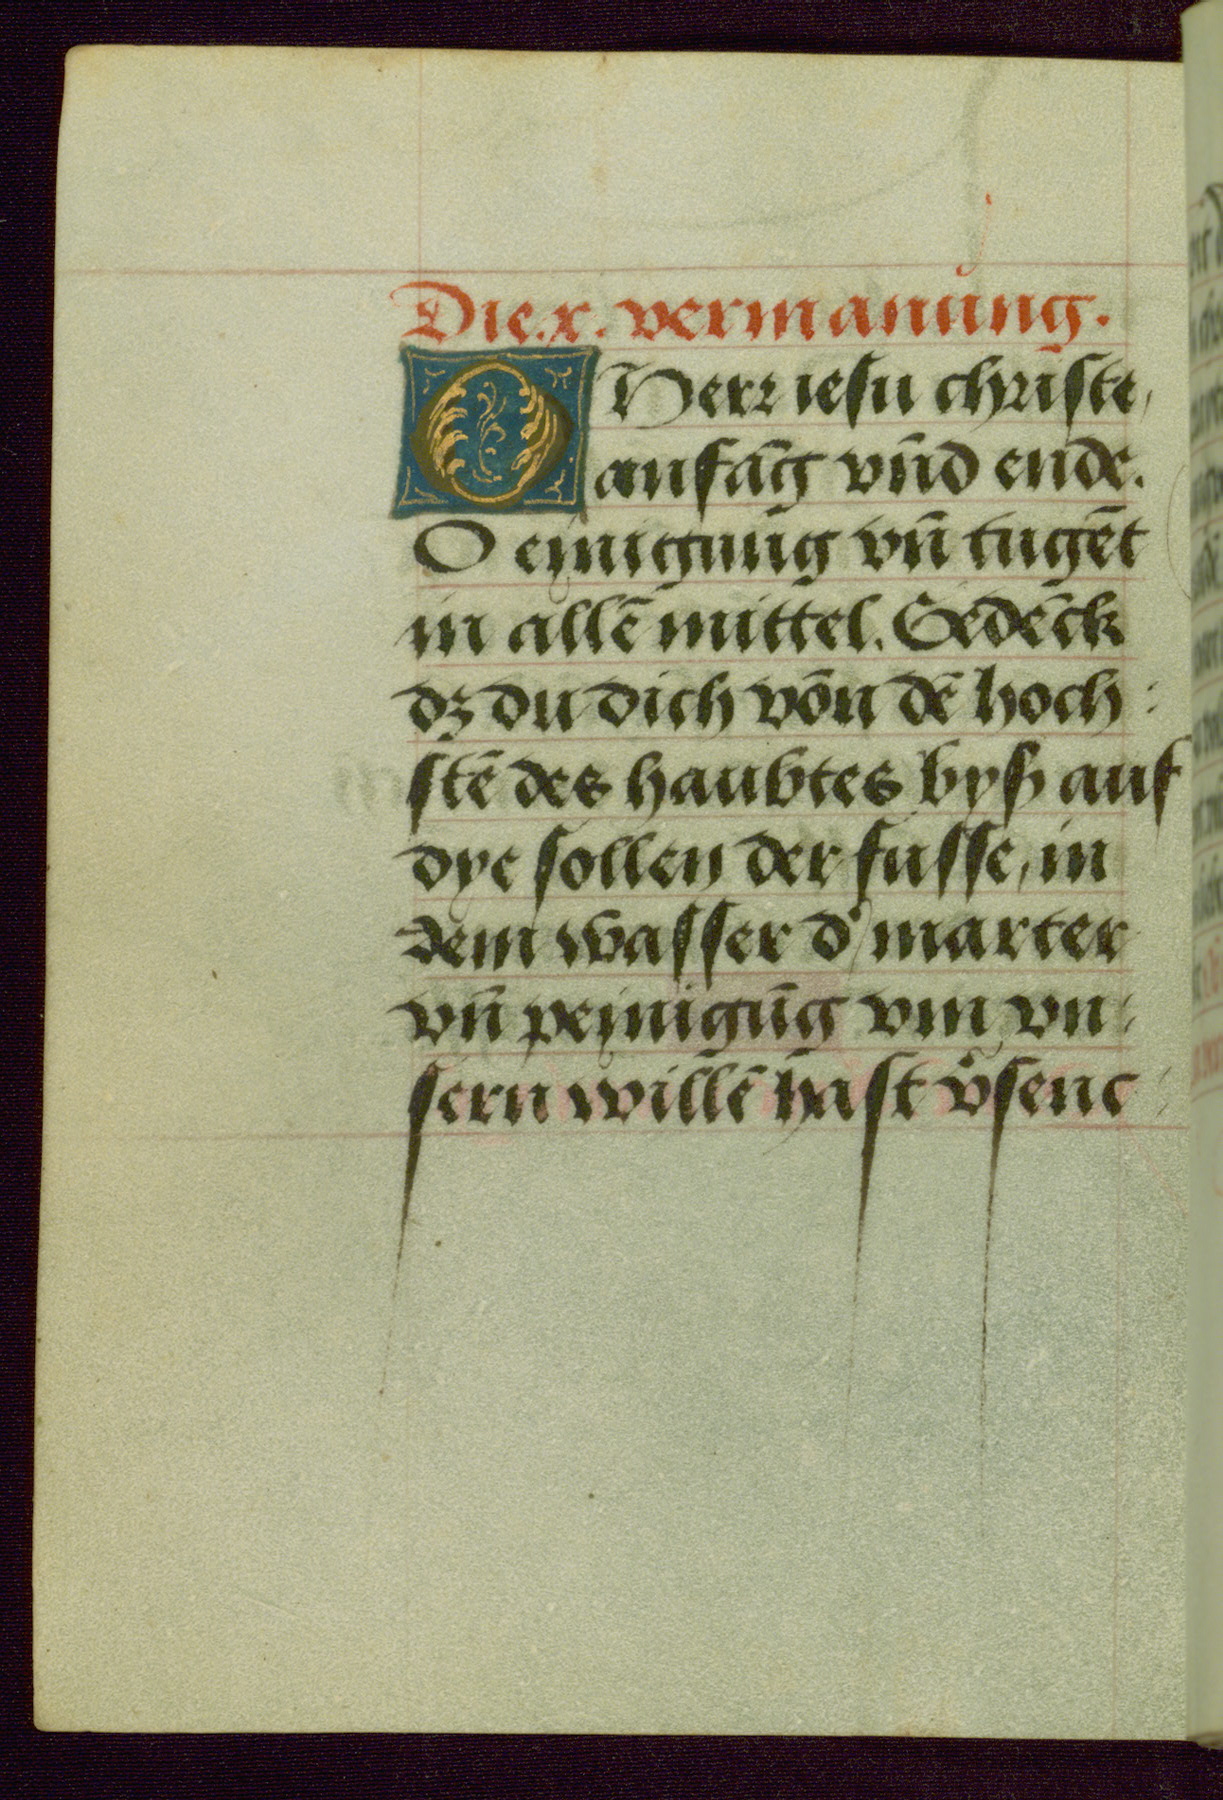 Die .x. vermanung.
O Herr iesu christe,
anfāg vn̄d ende.
O eynigung vn̄ tugēt
in allē mittel. Gedēck
dz du dich vōn dē hoch:
stē des haubtes byß auf
dye sollen der fusse, in
dem wasser d' marter
vn̄ peynigūg vm vn:
sern willē hast v̊senc: